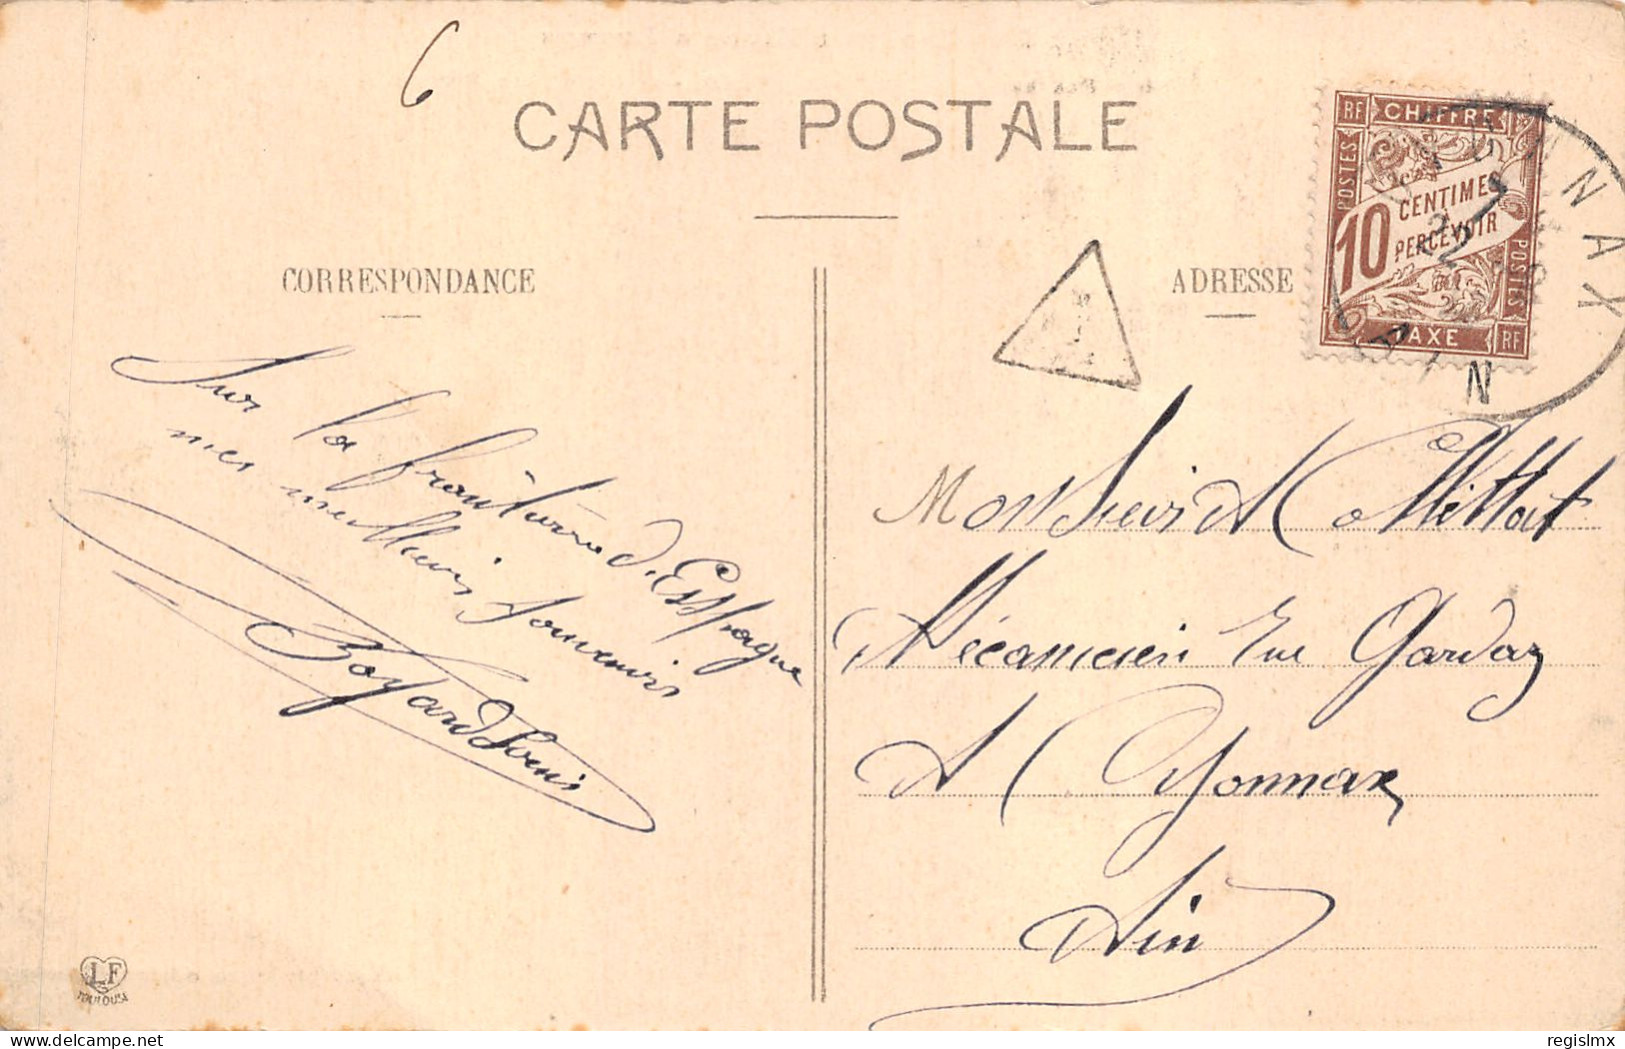 6
CARTE POSTALE
CORRESPONDANCE
ADRESSE
RF CHIFFRE
POSTES
10 CENTIMES
PERCEVOIR
POSTES
TAXE RF
OYONNAX
AIN
Sur la frontière d'Espagne
mes meilleurs souvenirs
Boyard Louis
Monsieur A
Mécanicien Rue
A Oyonnax
Ain
LF
TOULOUSE
delcampe.net
regislmx